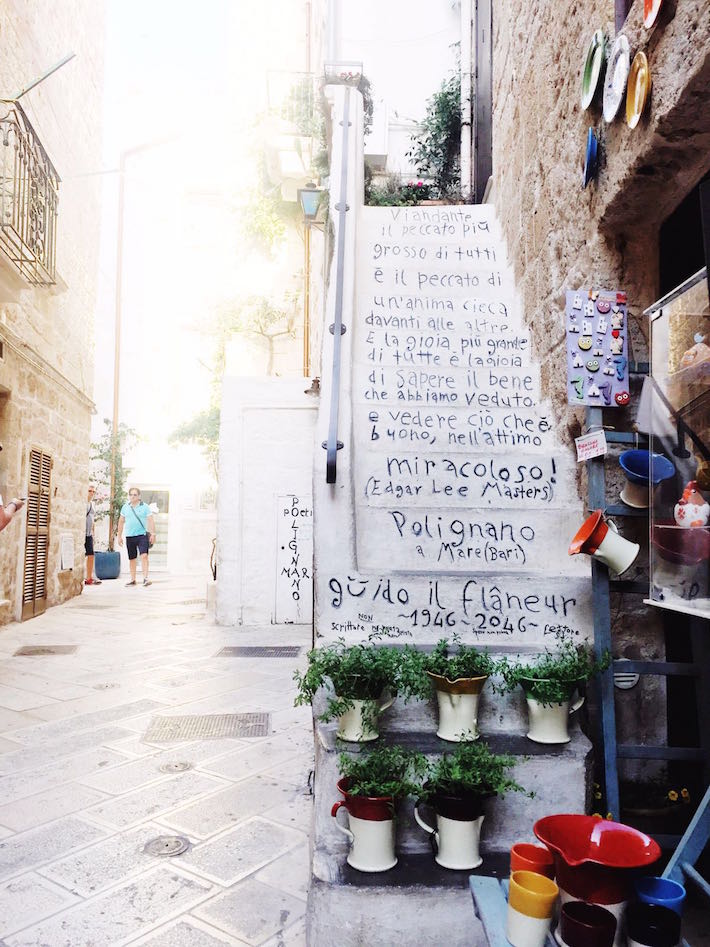 Viandante
il peccato più
grosso di tutti
è il peccato di
un'anima cieca
davanti alle altre.
E la gioia più grande
di tutte è la gioia
di sapere il bene
che abbiamo veduto,
e vedere ciò che è
buono, nell'attimo
miracoloso!
(Edgar Lee Masters)
Polignano
a Mare (Bari)
guido il flâneur
~1946~2046~
scrittore non
POLIGNANO
MAR